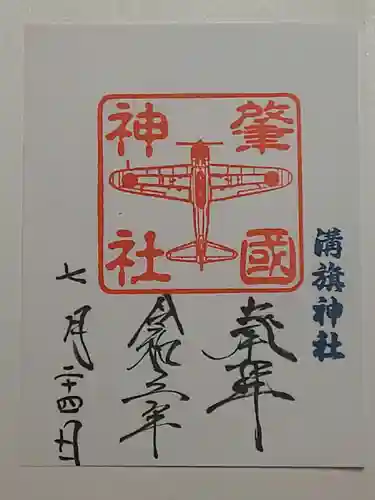 肇國
神社
溝旗神社
奉拝
令和二年
七月二十四日